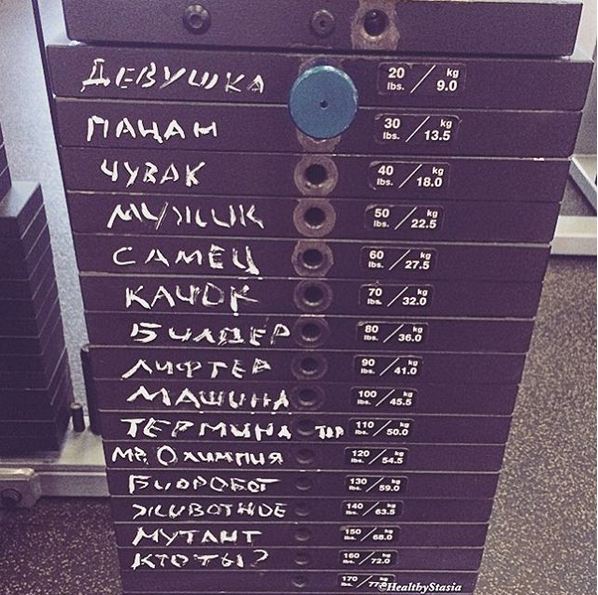 ДЕВУШКА 20 lbs. / kg 9.0
ПАЦАН 30 lbs. / kg 13.5
ЧУВАК 40 lbs. / kg 18.0
МУЖИК 50 lbs. / kg 22.5
САМЕЦ 60 lbs. / kg 27.5
КАЧОК 70 lbs. / kg 32.0
БИЛДЕР 80 lbs. / kg 36.0
ЛИФТЕР 90 lbs. / kg 41.0
МАШИНА 100 lbs. / kg 45.5
ТЕРМИНА ТОР 110 lbs. / kg 50.0
МР. ОЛИМПИЯ 120 lbs. / kg 54.5
БИОРОБОТ 130 lbs. / kg 59.0
ЖИВОТНОЕ 140 lbs. / kg 63.5
МУТАНТ 150 lbs. / kg 68.0
КТО ТЫ? 160 lbs. / kg 72.0
170 lbs. / kg
©HealthyStasia